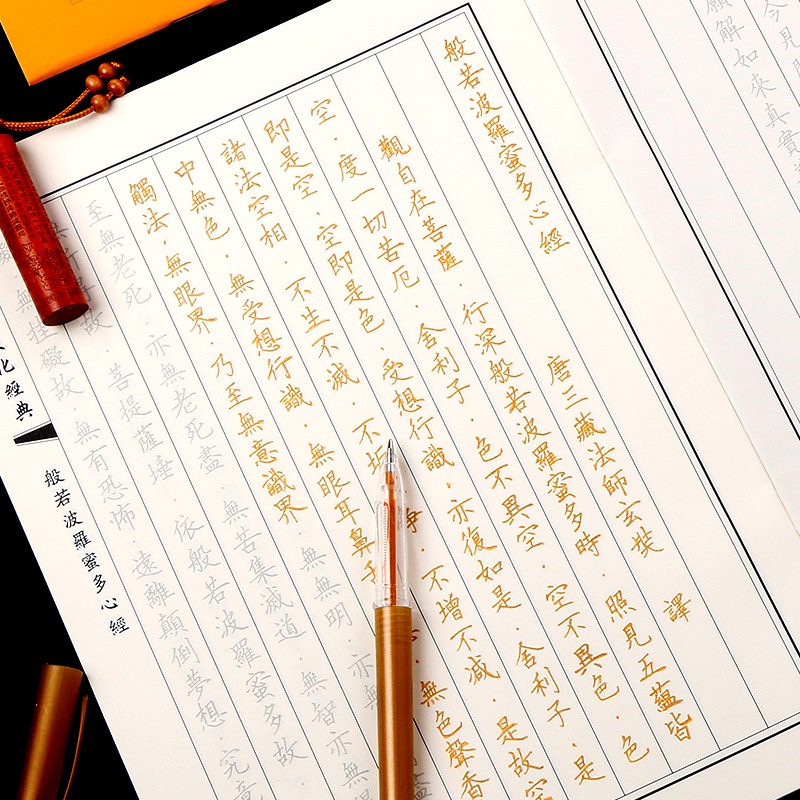 今見聞
願解如來真實
般若波羅蜜多心經
唐三藏法師玄奘 譯
觀自在菩薩．行深般若波羅蜜多時．照見五蘊皆
空．度一切苦厄．舍利子．色不異空．空不異色．色
即是空．空即是色．受想行識．亦復如是．舍利子．是
諸法空相．不生不滅．不垢 淨．不增不減．是故空
中無色．無受想行識．無眼耳鼻舌 無色聲香
觸法．無眼界．乃至無意識界．無無明．亦無
至無老死．亦無老死盡．無苦集滅道．無智亦無
得故．菩提薩埵．依般若波羅蜜多故
無罣礙故．無有恐怖．遠離顛倒夢想．究竟
化經典
般若波羅蜜多心經